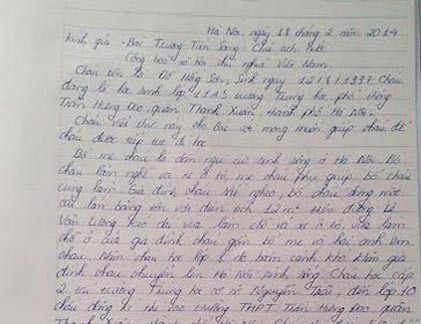 Hà Nội, ngày 18 tháng 2 năm 2014
Kính gửi - Bác Trương Tấn Sang Chủ tịch nước
Cộng hoà xã hội chủ nghĩa Việt Nam.
Cháu tên là Đỗ Hồng Sơn, Sinh ngày 12/8/1997. Cháu
đang là học sinh lớp 11A5 trường Trung học phổ thông
Trần Hưng Đạo quận Thanh Xuân, thành phố Hà Nội.
Cháu viết thư này cho Bác với mong muốn giúp cháu để
cháu được tiếp tục đi học.
Bố mẹ cháu là dân ngụ cư sinh sống ở Hà Nội. Bố
cháu làm nghề vá xe ô tô, mẹ cháu phụ giúp bố cháu
cùng làm. Gia đình cháu nghèo, bố cháu dựng một
cái lán bằng tôn với diện tích 12m² trên đường Lê
Văn Lương kéo dài vừa làm chỗ vá xe ô tô, vừa làm
chỗ ở của gia đình cháu gồm bố mẹ và hai anh em
cháu. Năm cháu học lớp do hoàn cảnh khó khăn gia
đình cháu chuyển lên Hà Nội sinh sống. Cháu học cấp
2 tại trường Trung học cơ sở Nguyễn Trãi, đến lớp 10
cháu đăng kí thi vào trường THPT Trần Hưng Đạo, quận
Thanh Xuân